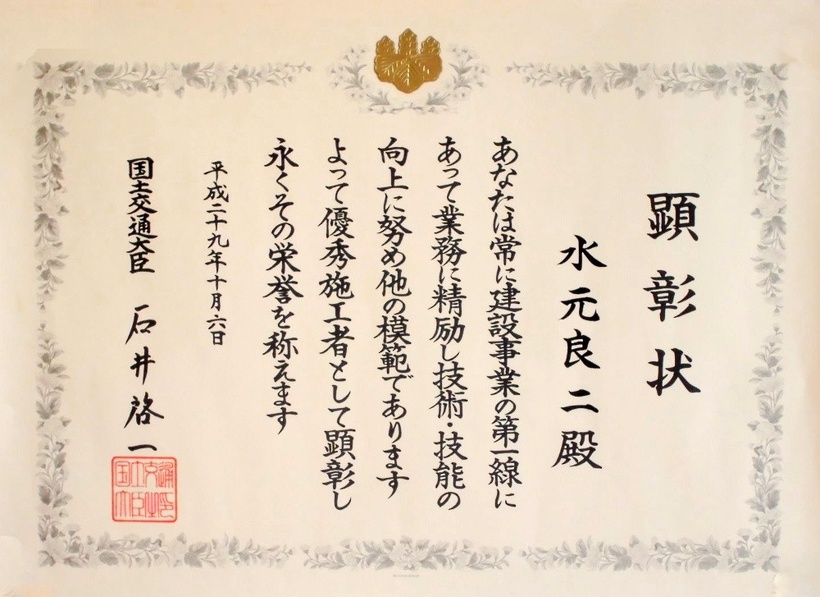 顕彰状
水元良二殿
あなたは常に建設事業の第一線に
あって業務に精励し技術・技能の
向上に努め他の模範であります
よって優秀施工者として顕彰し
永くその栄誉を称えます
平成二十九年十月六日
国土交通大臣 石井啓一